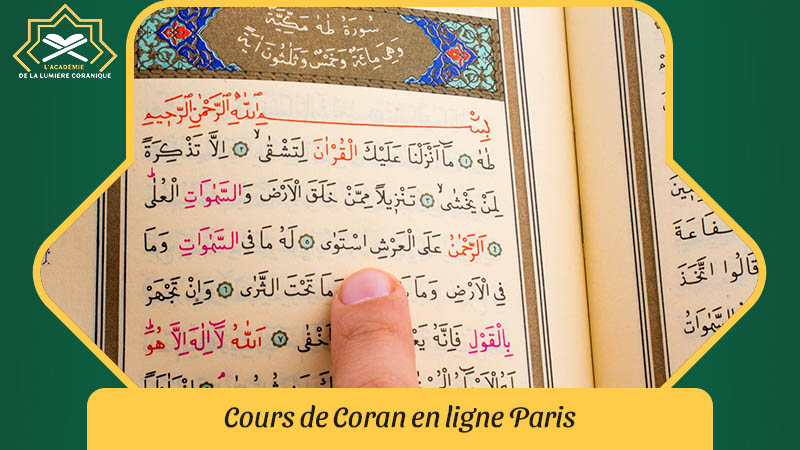 L'ACADEMIE
DE LA LUMIÈRE CORANIQUE
سُورَةُ طٰهٰ مَكِّيَّةٌ
وَهِيَ مِائَةٌ وَخَمْسٌ وَثَلٰثُونَ اٰيَةً
بِسْــــــمِ اللّٰهِ الرَّحْمٰنِ الرَّح۪يمِ
طٰهٰ ۝١ مَٓا اَنْزَلْنَا عَلَيْكَ الْقُرْاٰنَ لِتَشْقٰىۙ ۝٢ اِلَّا تَذْكِرَةً
لِمَنْ يَخْشٰىۙ ۝٣ تَنْز۪يلاً مِمَّنْ خَلَقَ الْاَرْضَ وَالسَّمٰوَاتِ الْعُلٰىۜ
۝٤ اَلرَّحْمٰنُ عَلَى الْعَرْشِ اسْتَوٰى ۝٥ لَهُ مَا فِي السَّمٰوَاتِ وَمَا
فِي الْاَرْضِ وَمَا وَمَا تَحْتَ الثَّرٰى ۝٦ وَاِنْ تَجْهَرْ
بِالْقَوْلِ فَاِنَّهُ يَعْ خْفٰى ۝٧ اَللّٰهُ لَٓا اِلٰهَ اِلَّا هُوَۜ
فَاعَةَ
قَالُوا اتَّخَذَ
السَّمٰوَاتُ
Cours de Coran en ligne Paris